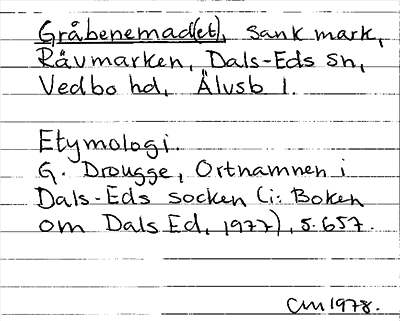 Gråbenemad(et), sank mark,
Rävmarken, Dals-Eds sn,
Vedbo hd, Älvsb l.
Etymologi.
G. Drougge, Ortnamnen i
Dals-Eds socken (i: Boken
om Dals Ed, 1977), s. 657.
CM 1978.